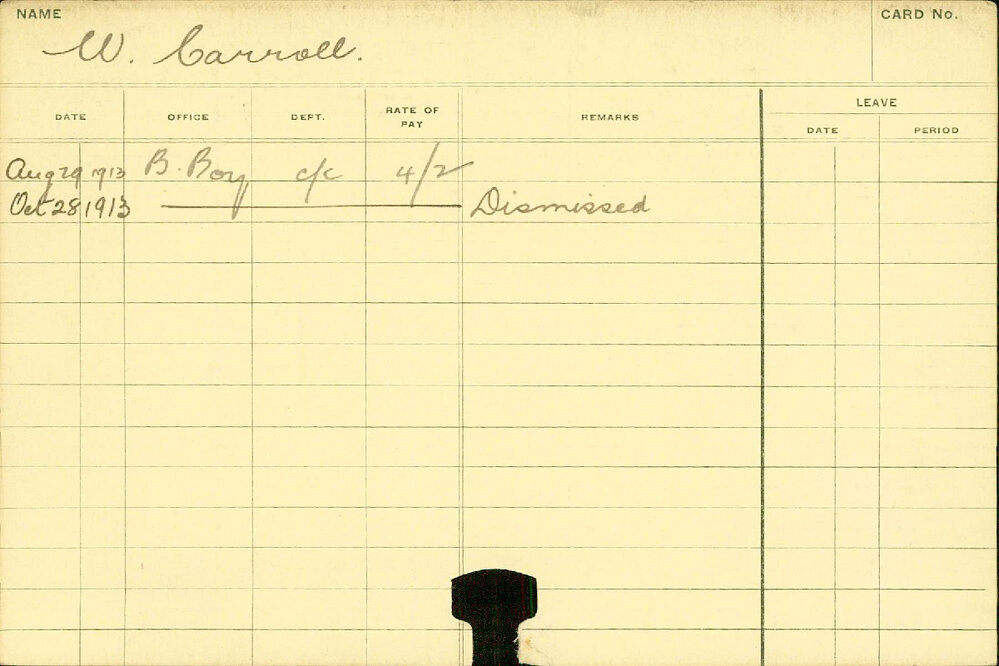 NAME CARD No.
W. Carroll.
LEAVE
DATE OFFICE DEPT. RATE OF PAY REMARKS DATE PERIOD
Aug 29 1913 B. Boy c/c 4/2
Oct 28 1913 Dismissed